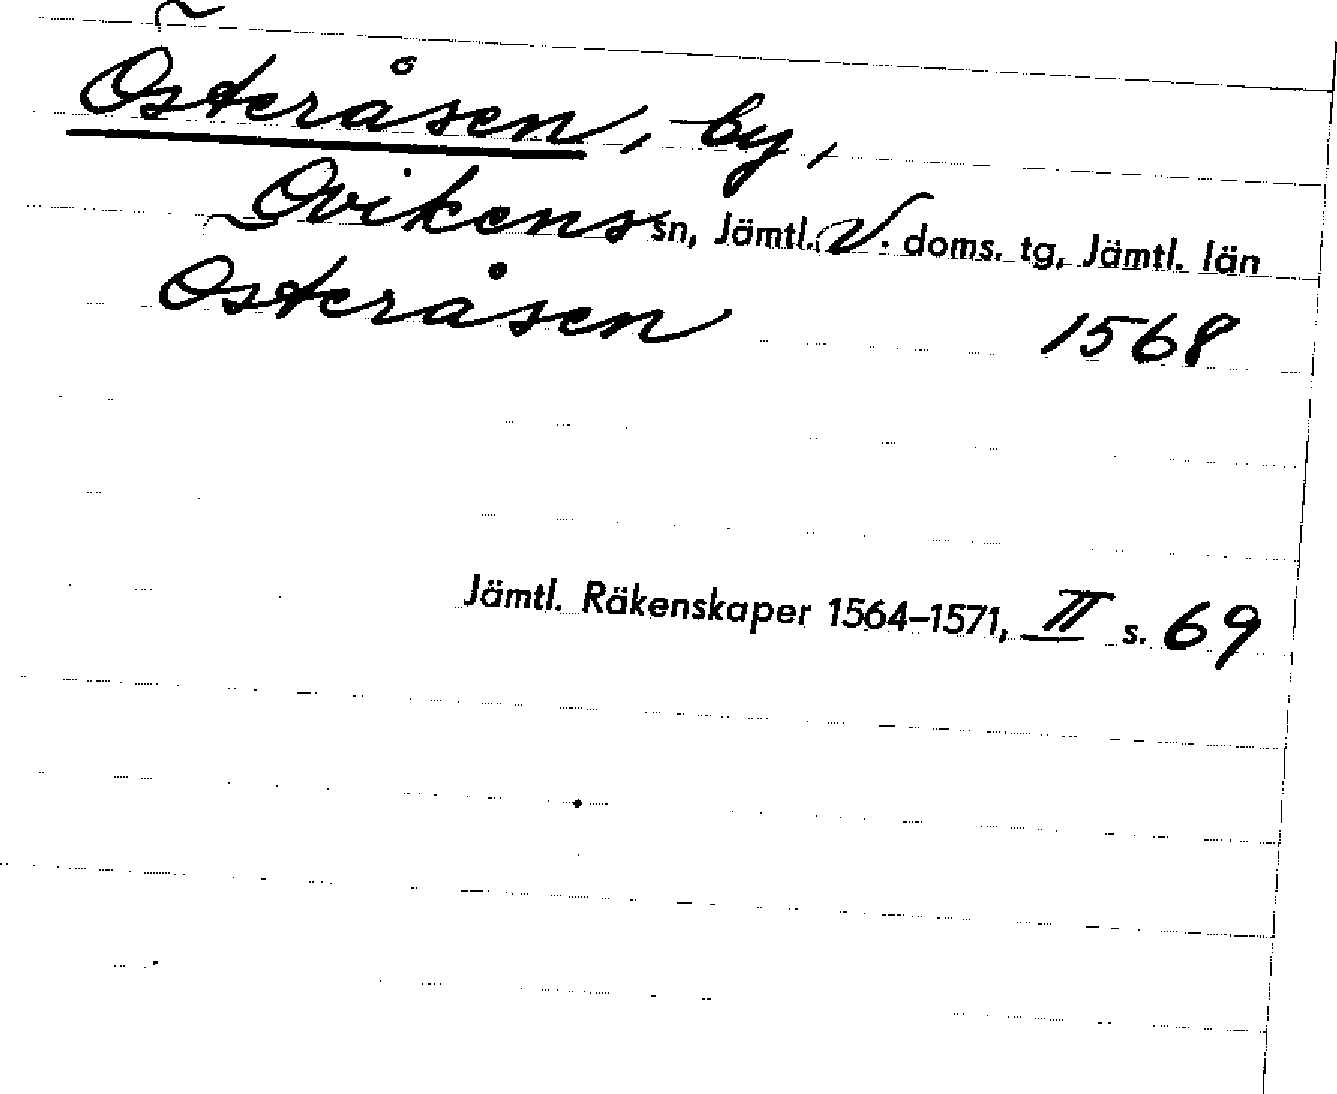 Österåsen, by,
Ovikens sn, Jämtl. V. doms. tg, Jämtl. län
Österåsen 1568
Jämtl. Räkenskaper 1564–1571, II s. 69